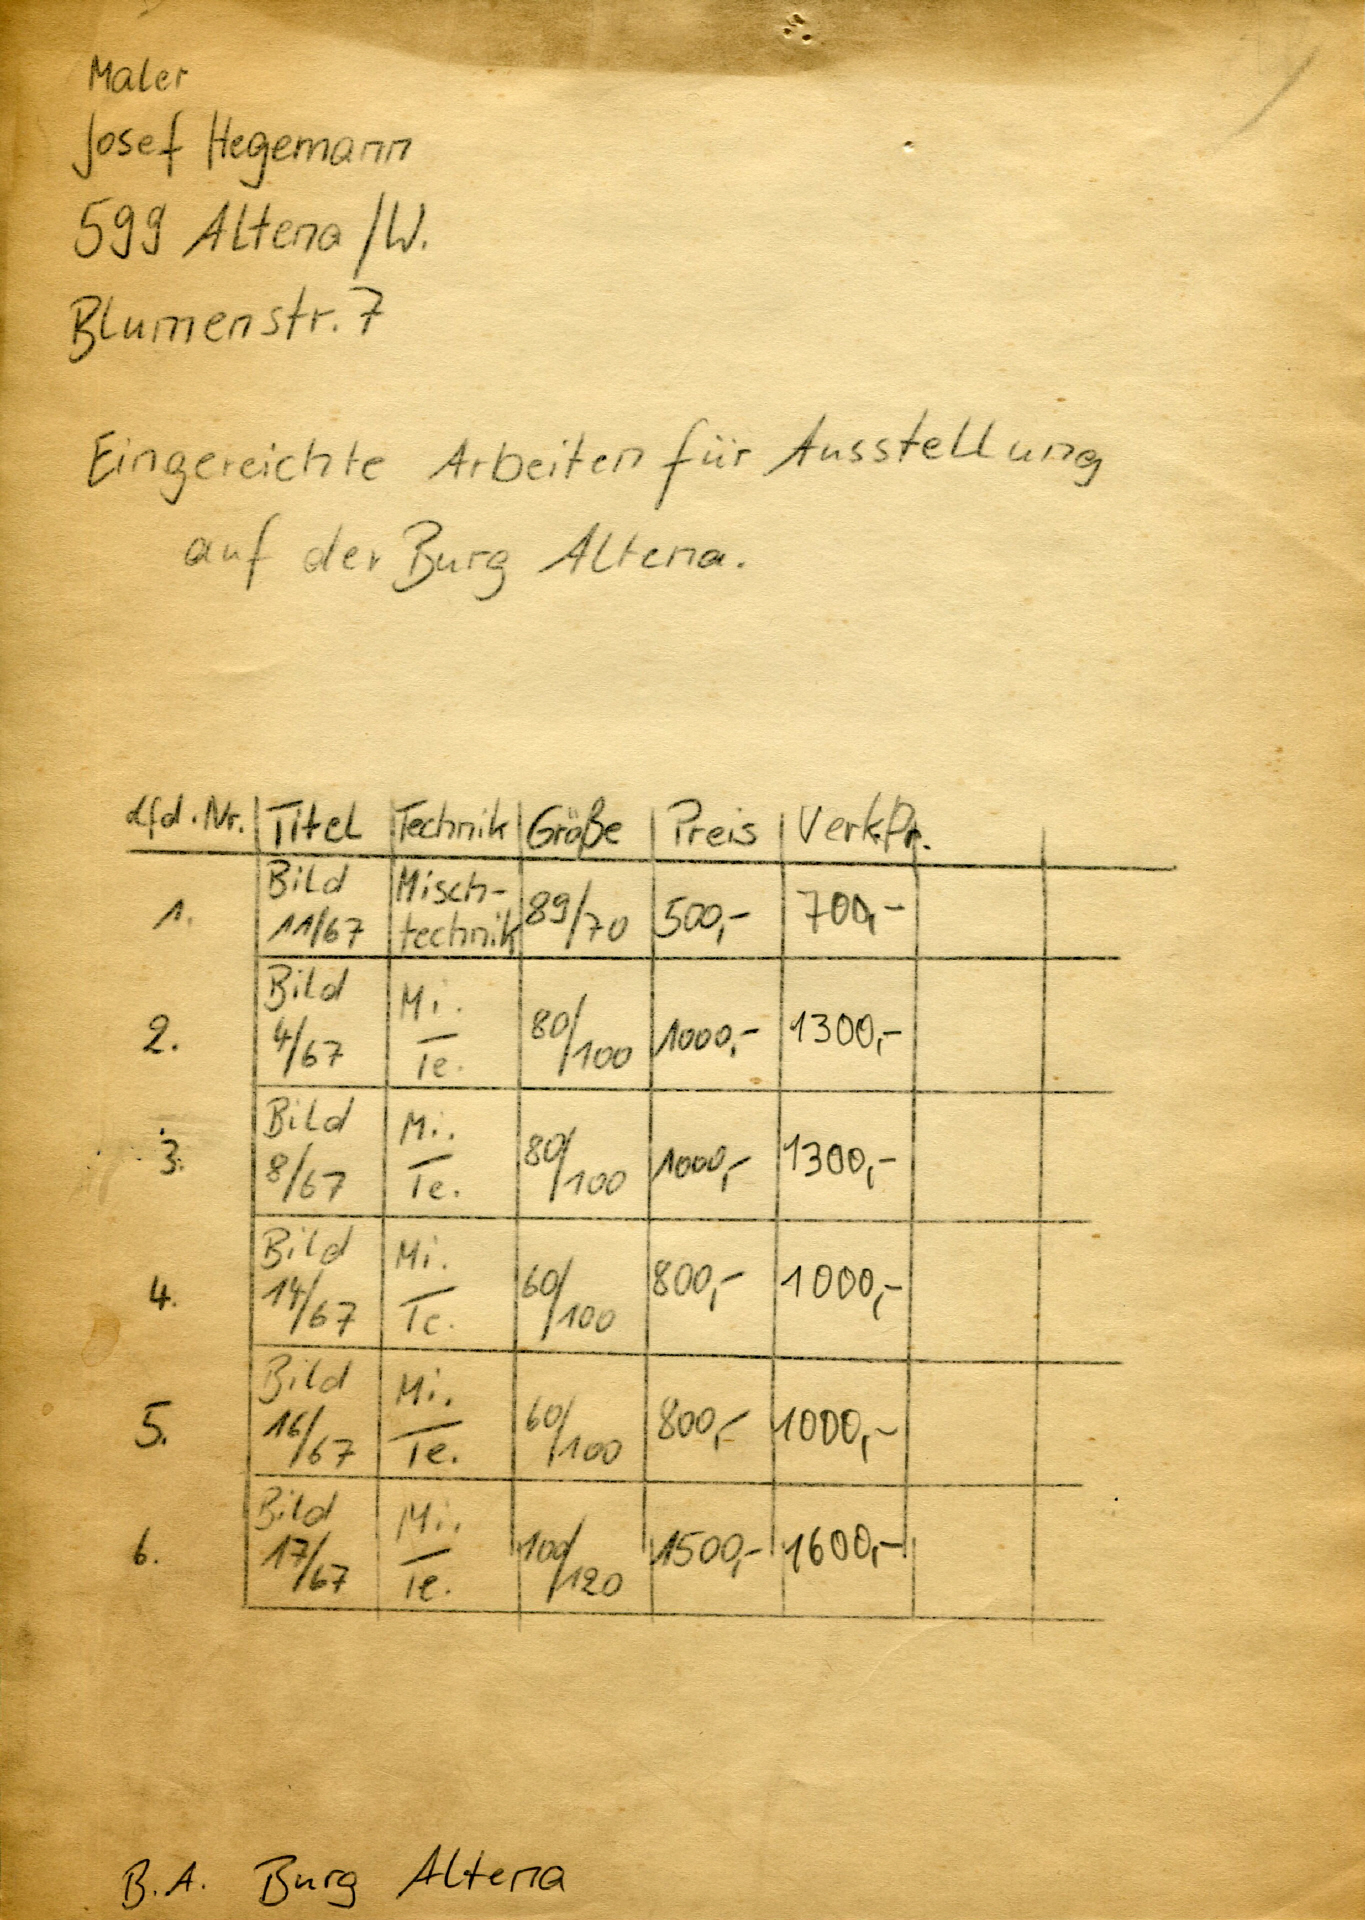 Maler
Josef Hegemann
599 Altena /W.
Blumenstr. 7
Eingereichte Arbeiten für Ausstellung
auf der Burg Altena.
Lfd. Nr. Titel Technik Größe Preis Verk.Pr.
1. Bild 11/67 Misch-technik 89/70 500,- 700,-
2. Bild 4/67 Mi. Te. 80/100 1000,- 1300,-
3. Bild 8/67 Mi. Te. 80/100 1000,- 1300,-
4. Bild 14/67 Mi. Te. 60/100 800,- 1000,-
5. Bild 16/67 Mi. Te. 60/100 800,- 1000,-
6. Bild 17/67 Mi. Te. 100/120 1500,- 1600,-
B.A. Burg Altena